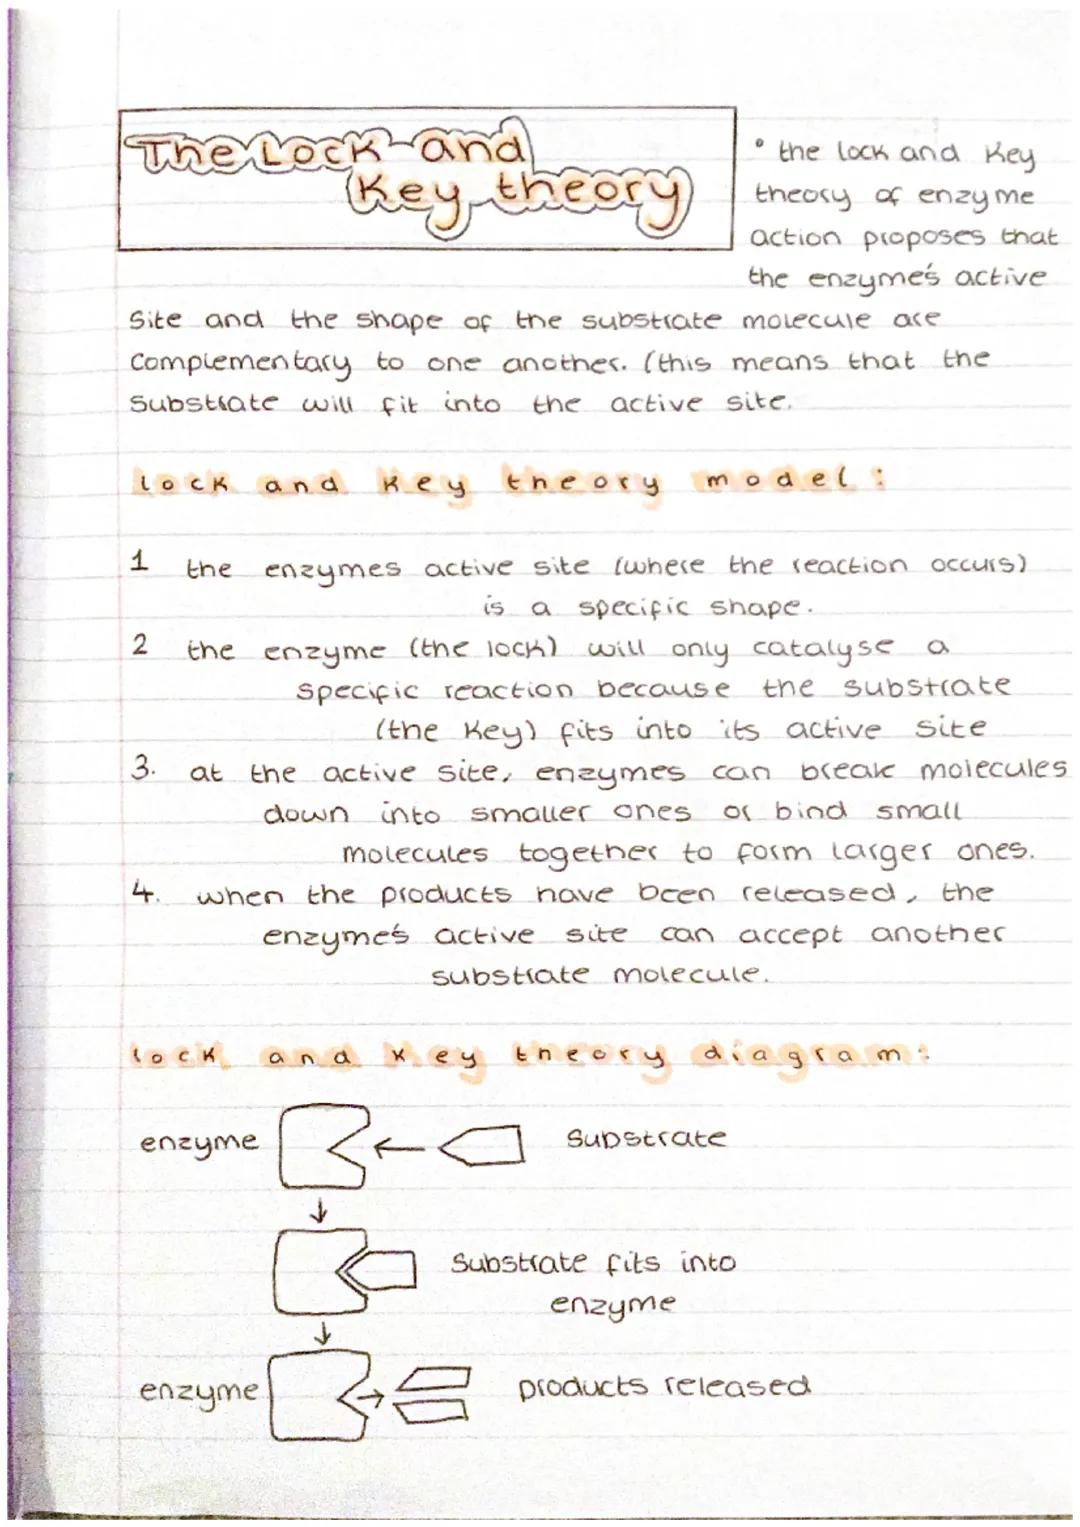 The Lock and
Key theory
• the lock and Key
theory of enzyme
action proposes that
the enzyme's active
Site and the shape of the substrate molecule are
Complementary to one another. (this means that the
Substrate will fit into the active site.
lock and Key theory model:
1 the enzymes active site (where the reaction occurs)
is a specific shape.
2 the enzyme (the lock) will only catalyse a
Specific reaction because the substrate
(the Key) fits into its active site
3. at the active site, enzymes can break molecules
down into smaller ones or bind small
molecules together to form larger ones.
4. when the products have been released, the
enzyme's active site can accept another
substrate molecule.
lock and Key theory diagram:
enzyme Substrate
Substrate fits into
enzyme
enzyme products released